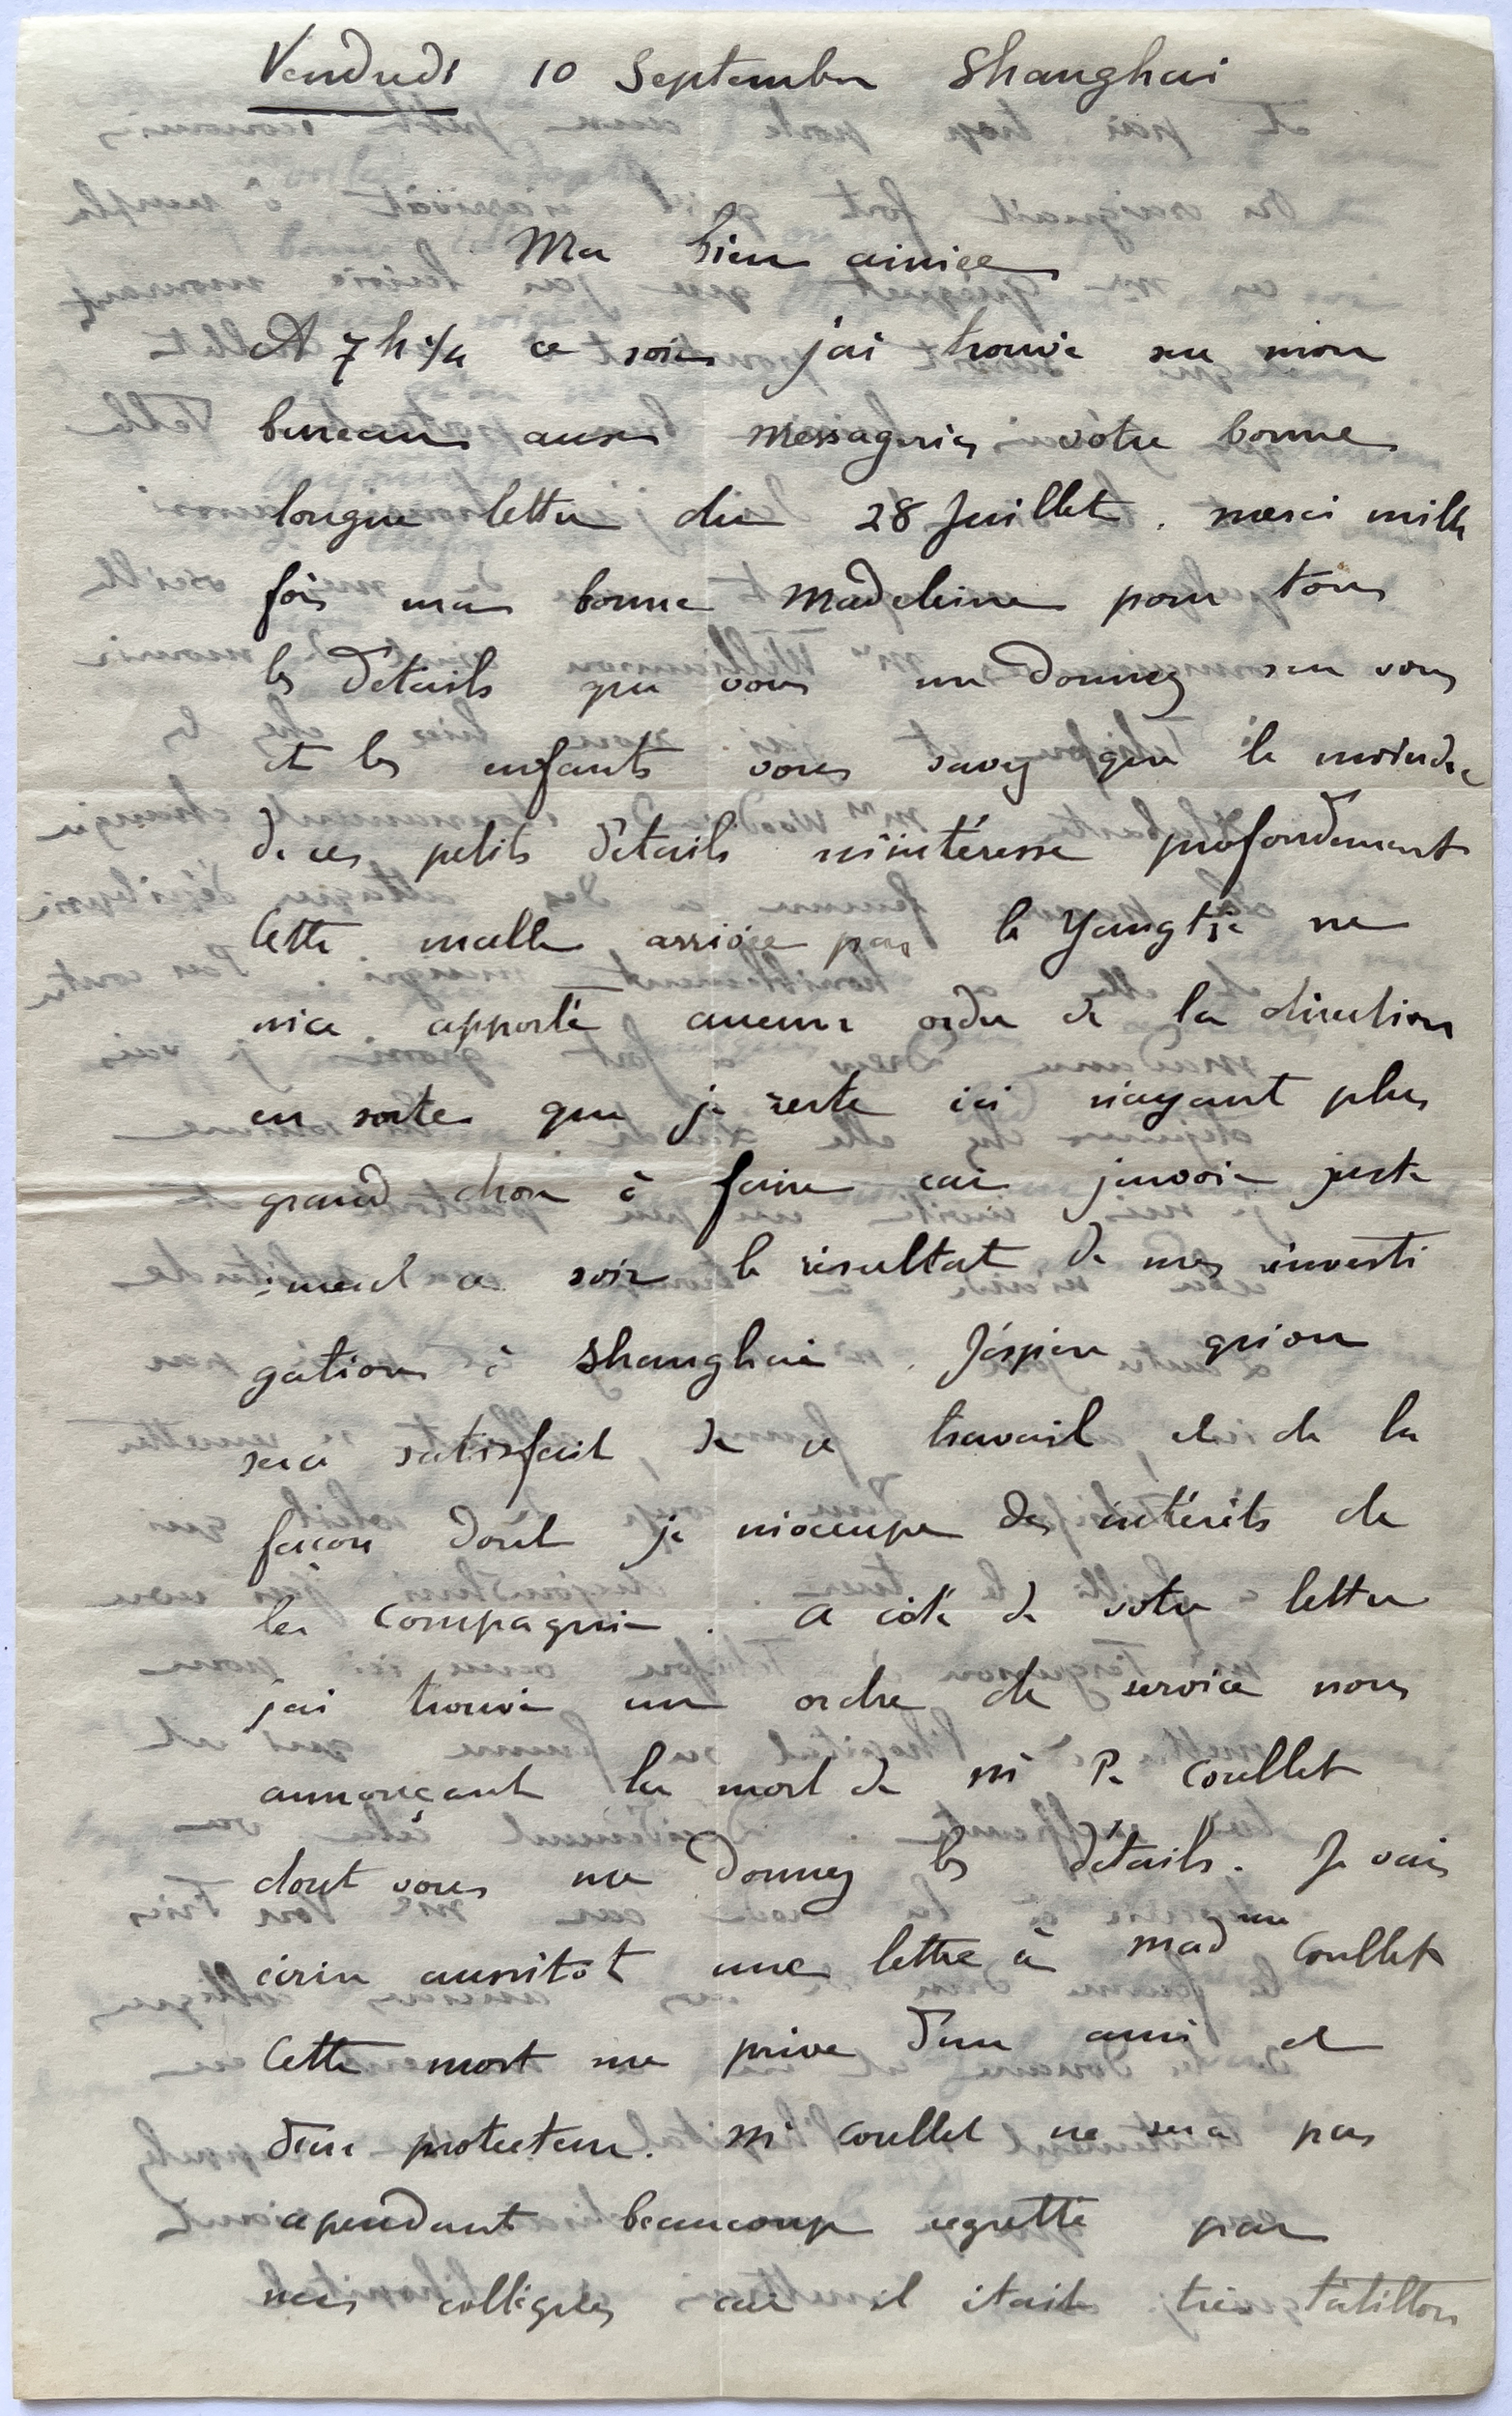 Vendredi 10 Septembre Shanghai
Ma bien aimée
A 7h ce soir j'ai trouvé sur mon
bureau aux messageries votre bonne
longue lettre du 28 Juillet. merci mille
fois ma bonne Madeleine pour tous
les détails que vous me donnez sur vous
et les enfants vous savez que le moindre
de ces petits détails m'intéresse profondement
Cette malle arrivée par le Yangtsé ne
m'a apporté aucun ordre de la direction
en sorte que je reste ici n'ayant plus
grand chose à faire car j'envoie juste
=ment ce soir le résultat de mes investi
gations à Shanghai. J'espère qu'on
sera satisfait de ce travail et de la
façon dont je m'occupe des intérêts de
la Compagnie. A côté de votre lettre
j'ai trouvé un ordre de service nous
annonçant la mort de Mr P. Coullet
dont vous me donnez les détails. Je vais
écrire aussitot une lettre à Madme Coullet
Cette mort me prive d'un ami et
d'un protecteur. Mr Coullet ne sera pas
cependant beaucoup regretté par
mes collègues car il était très tatillon